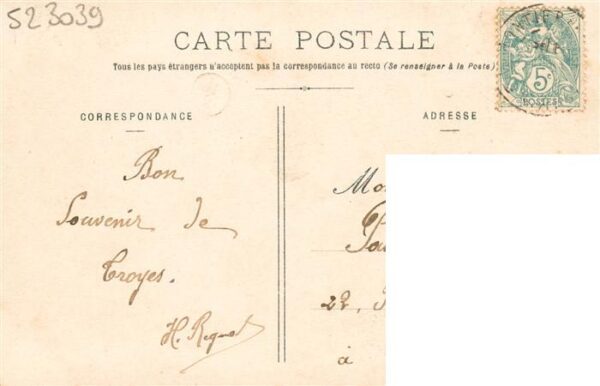 523039
CARTE POSTALE
Tous les pays étrangers n'acceptent pas la correspondance au recto (Se renseigner à la Poste)
CORRESPONDANCE
ADRESSE
5c
POSTES
Bon
Souvenir de
Troyes.
22,
à